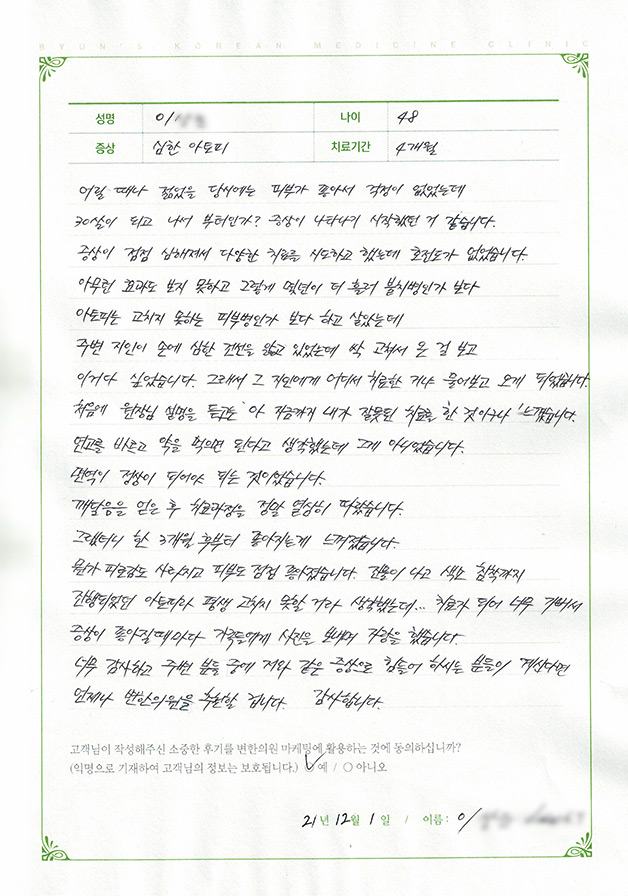 BYUN'S KOREAN MEDICINE CLINIC
성명 이 나이 48
증상 심한 아토피 치료기간 4개월
어릴 때나 젊었을 당시에는 피부가 좋아서 걱정이 없었는데
30살이 되고 나서 부터인가? 증상이 나타나기 시작했던 거 같습니다.
증상이 점점 심해져서 다양한 치료를 시도하고 했는데 호전도가 없었습니다.
아무런 효과도 보지 못하고 그렇게 몇년이 더 흘러 불치병인가 보다
아토피는 고치지 못하는 피부병인가 보다 하고 살았는데
주변 지인이 손에 심한 건선을 앓고 있었는데 싹 고쳐서 온 걸 보고
이거다 싶었습니다. 그래서 그 지인에게 어디서 치료한 거냐 물어보고 오게 되었습니다.
처음에 원장님 설명을 듣고는 '아 지금까지 내가 잘못된 치료를 한 것이구나' 느꼈습니다.
연고를 바르고 약을 먹으면 된다고 생각했는데 그게 아니었습니다.
면역이 정상이 되어야 되는 것이었습니다.
깨달음을 얻은 후 치료과정을 정말 열심히 따랐습니다.
그랬더니 한 3개월 후부터 좋아지는게 느껴졌습니다.
뭔가 피로감도 사라지고 피부도 점점 좋아졌습니다. 진물이 나고 색소 침착까지
진행되었던 아토피라 평생 고치지 못할 거라 생각했는데... 치료가 되어 너무 기뻐서
증상이 좋아질때마다 가족들에게 사진을 보내며 자랑을 했습니다.
너무 감사하고 주변 분들 중에 저와 같은 증상으로 힘들어 하시는 분들이 계신다면
언제나 변한의원을 추천할 겁니다. 감사합니다.
고객님이 작성해주신 소중한 후기를 변한의원 마케팅에 활용하는 것에 동의하십니까?
(익명으로 기재하여 고객님의 정보는 보호됩니다.) ○ 예 / ○ 아니오
21년 12월 1일 / 이름: 이
BYUN'S KOREAN MEDICINE CLINIC